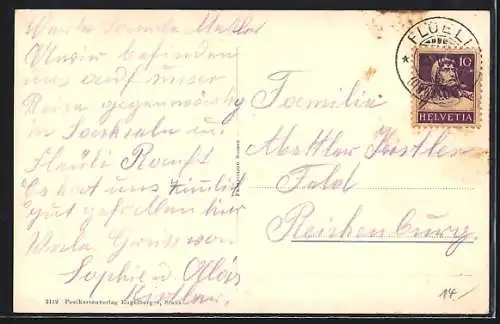 Werte Familie Mettler
Unsier befinden
uns auf unser
Reise gegenwärtig
in Sachseln u.
Flüeli Ranft
Es hat uns ziemlich
gut gefallen hier
Viele Grüss von
Sophie u. Alois
Kistler.
3119 Postkartenverlag Engelberger, Stans
FLÜELI
10
HELVETIA
Familie
Mettler Kistler
Feld
Reichenburg.
14.-